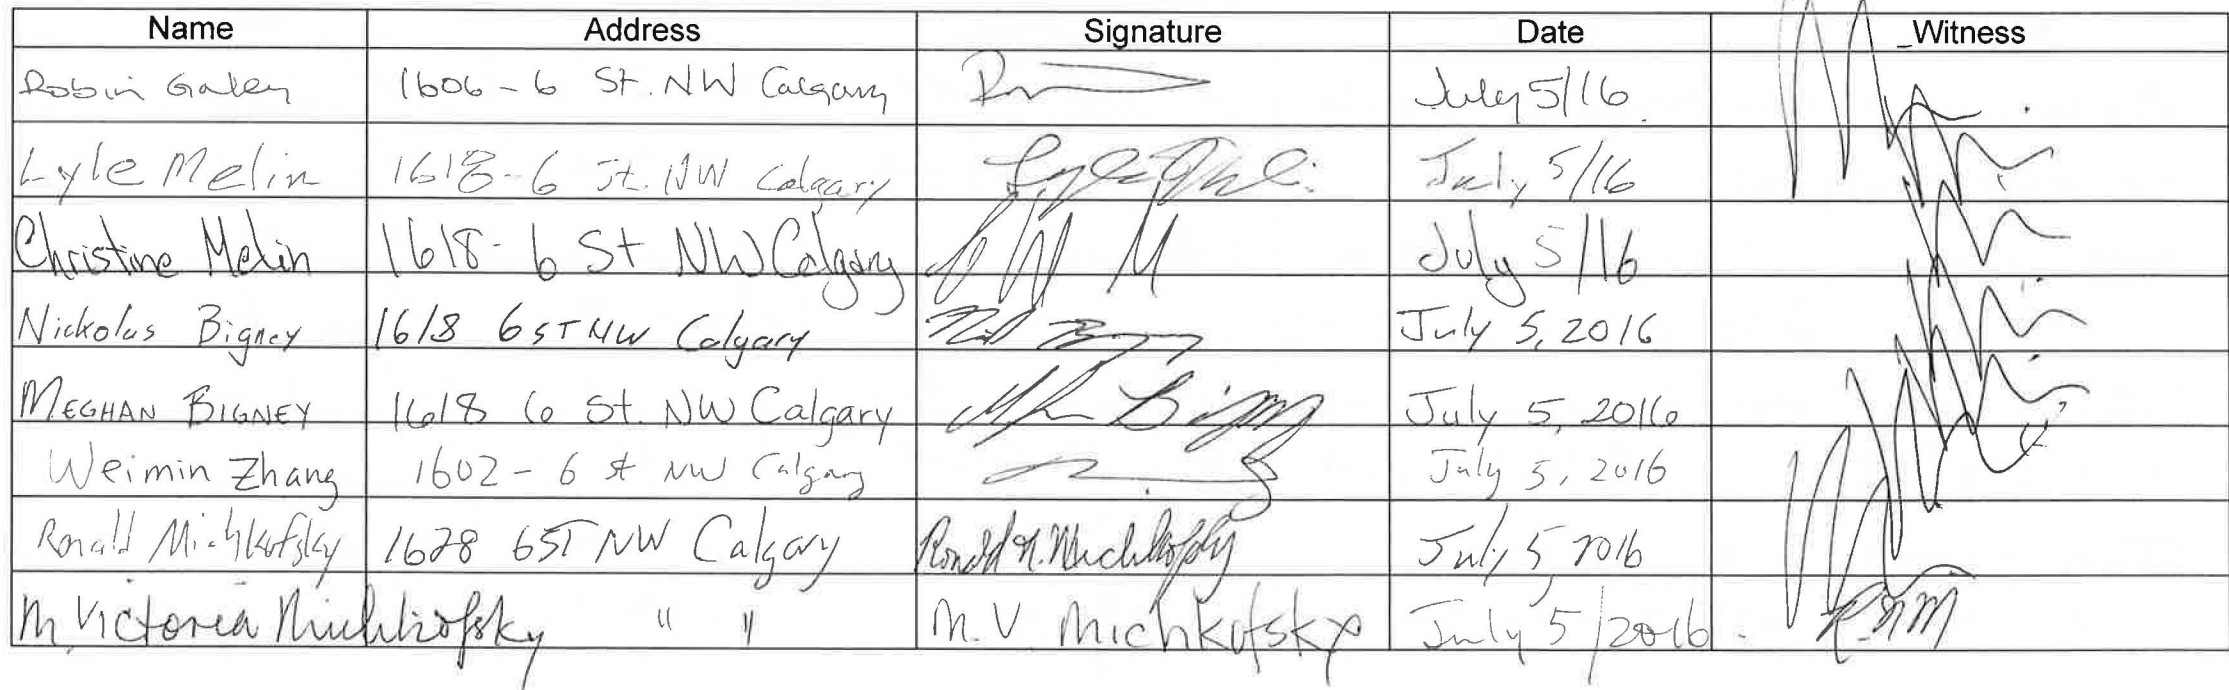 Name Address Signature Date _Witness
Robin Galey 1606 - 6 St. NW Calgary July 5/16
Lyle Melin 1618 - 6 St. NW Calgary July 5/16
Christine Melin 1618 - 6 St NW Calgary July 5/16
Nickolas Bigney 1618 6 ST NW Calgary July 5, 2016
MEGHAN BIGNEY 1618 6 St. NW Calgary July 5, 2016
Weimin Zhang 1602 - 6 st NW Calgary July 5, 2016
Ronald Michkofsky 1628 6 ST NW Calgary Ronald N. Michkofsky July 5, 2016
M. Victoria Michkofsky " " M. V Michkofsky July 5/2016. RNM